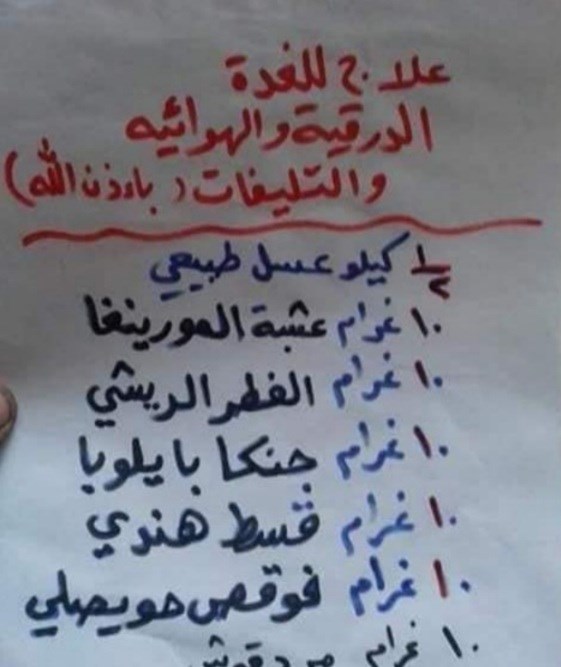 علاج للغدة
الدرقية والهوائيه
والتليفات (باءذن الله)
١/٢ كيلو عسل طبيعي
١٠ غرام عشبة المورينغا
١٠ غرام الفطر الريشي
١٠ غرام جنكا بايلوبا
١٠ غرام قسط هندي
١٠ غرام فوقص حويصلي
١٠ غرام